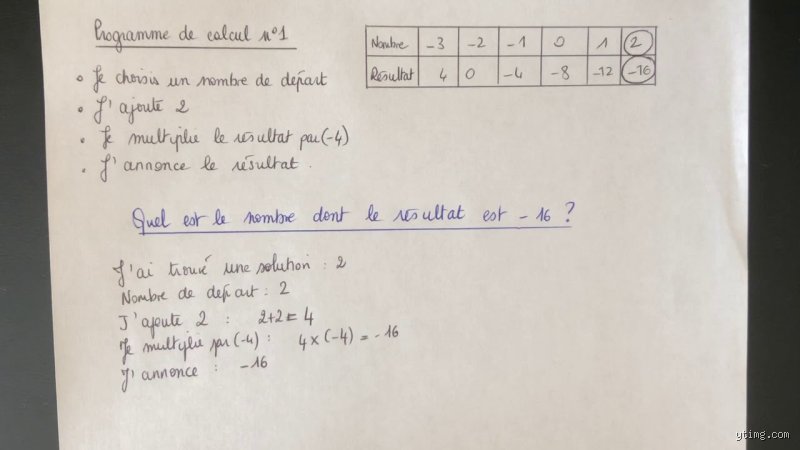 Programme de calcul n°1
• Je choisis un nombre de départ
• J'ajoute 2
• Je multiplie le résultat par (-4)
• J'annonce le résultat.
Nombre -3 -2 -1 0 1 2
Résultat 4 0 -4 -8 -12 -16
Quel est le nombre dont le résultat est -16 ?
J'ai trouvé une solution : 2
Nombre de départ : 2
J'ajoute 2 : 2+2=4
Je multiplie par (-4) : 4×(-4) = -16
J'annonce : -16
ytimg.com